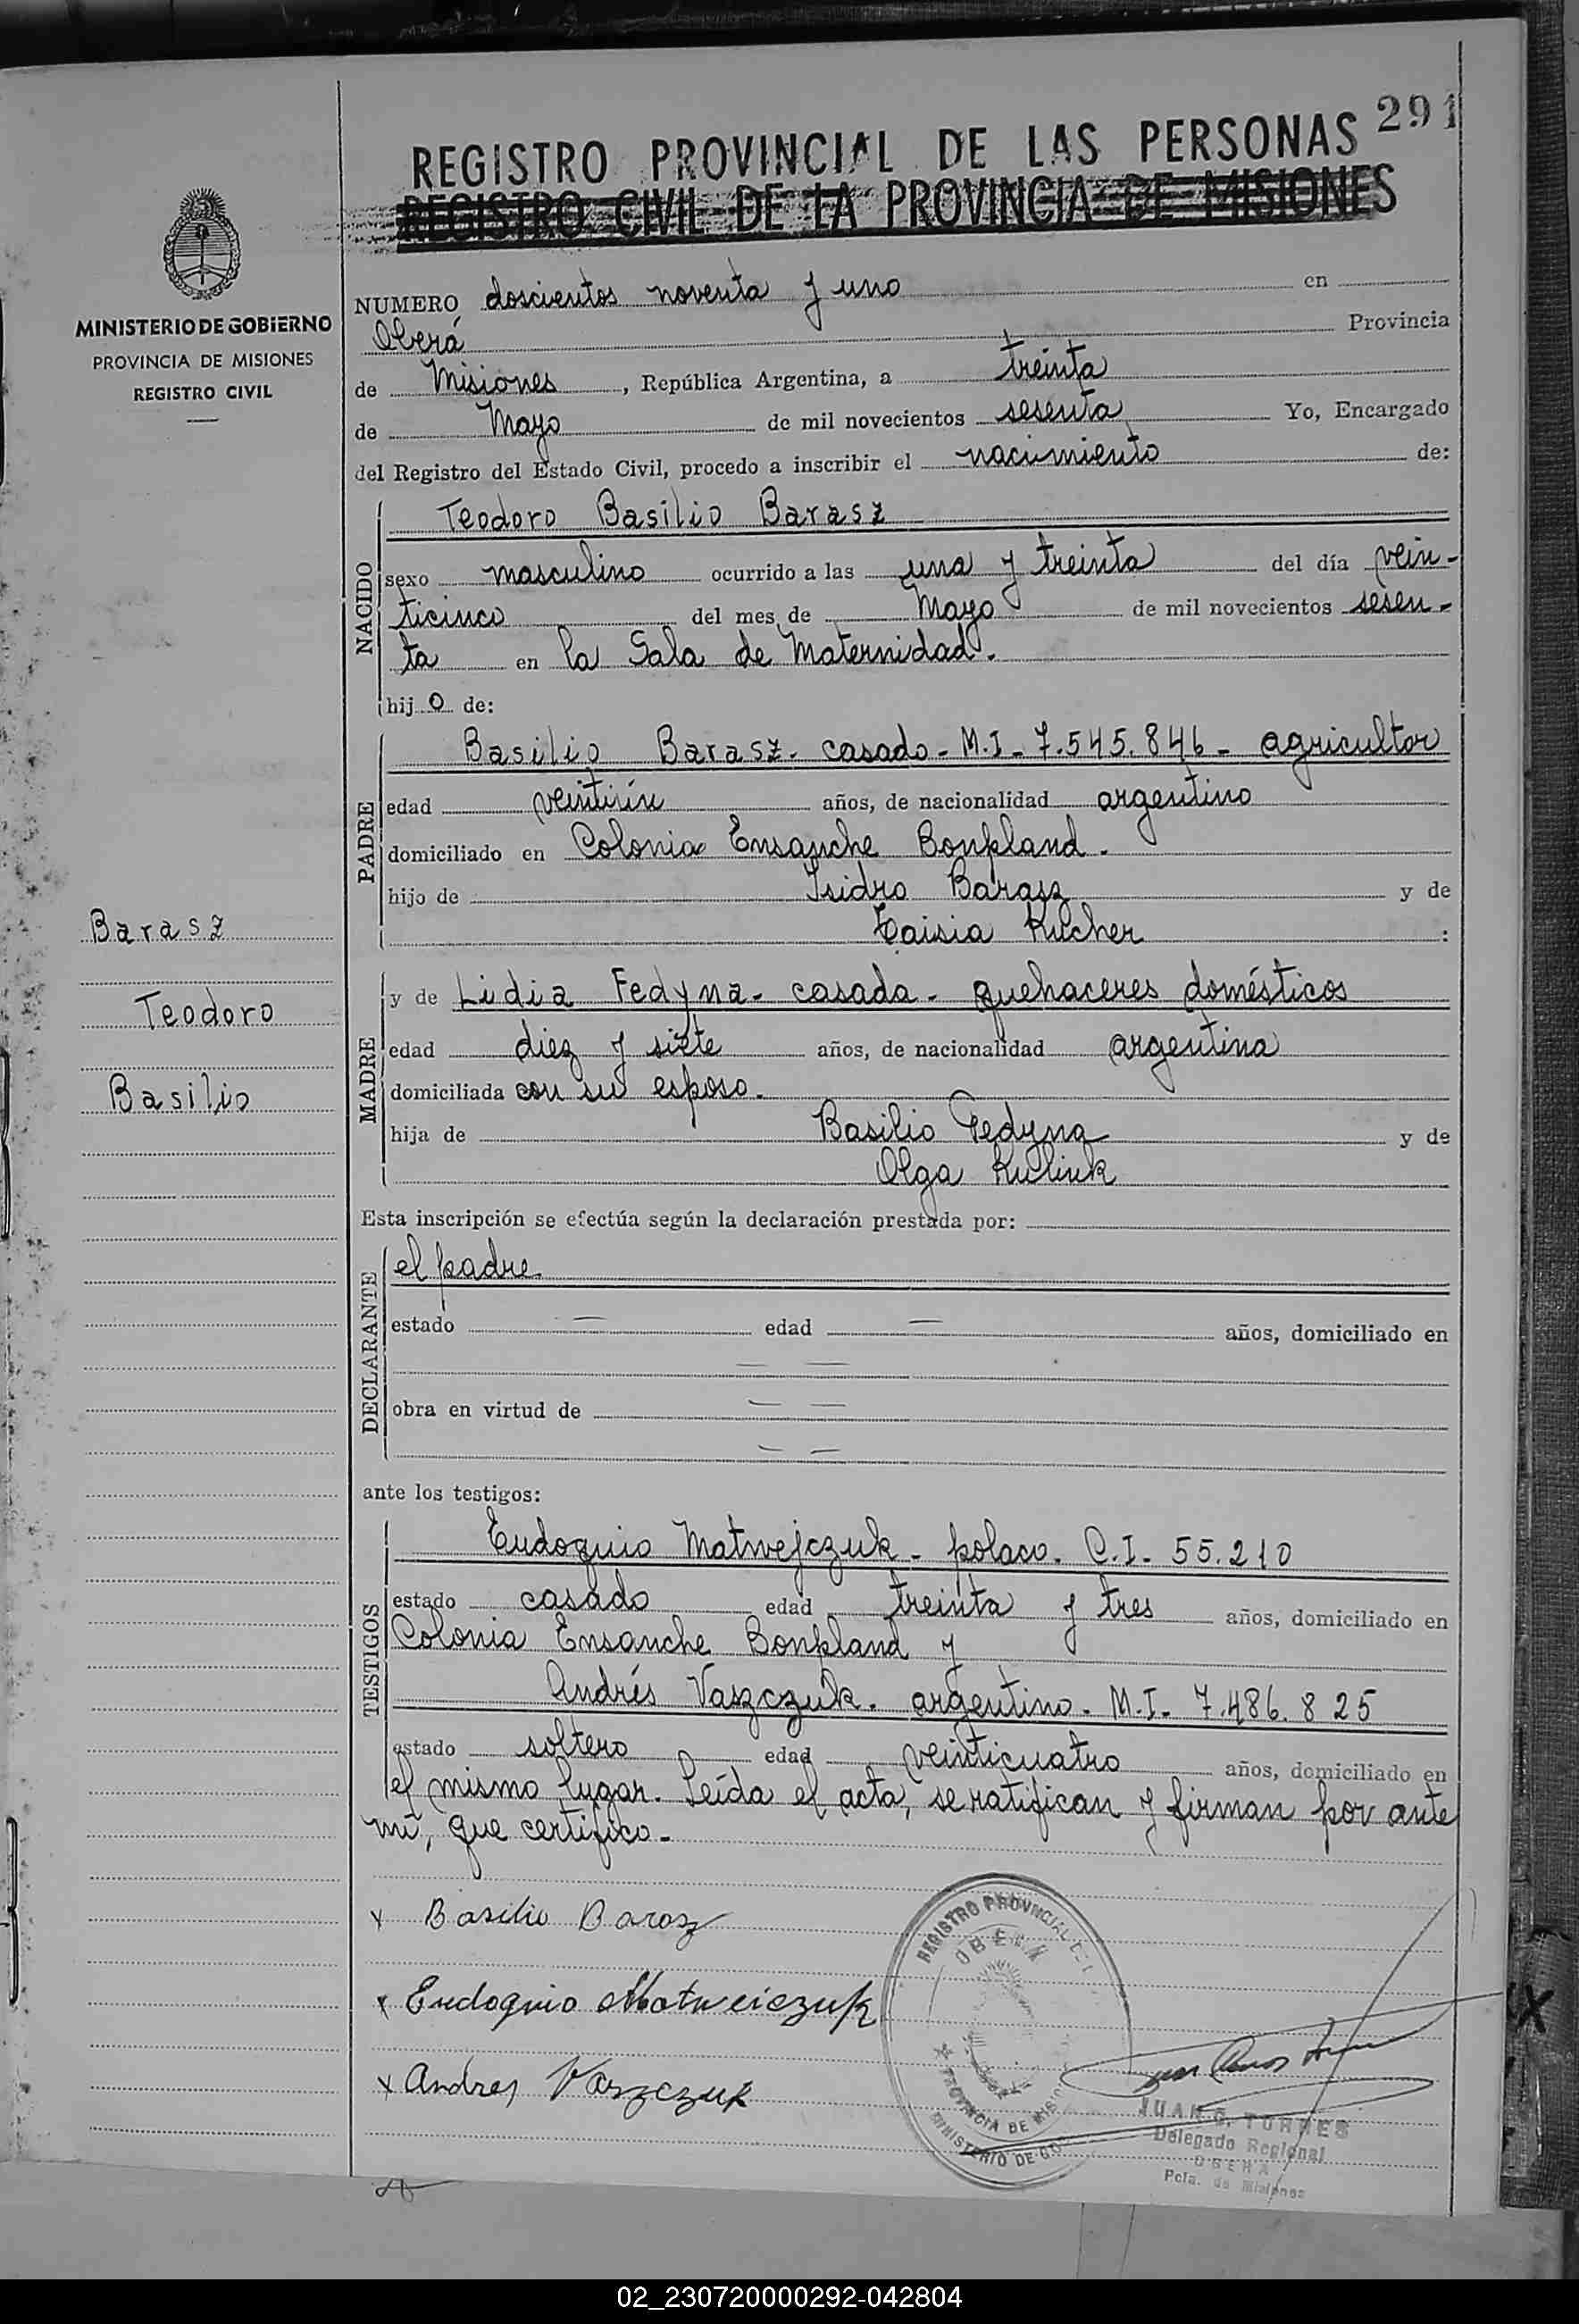 291
REGISTRO PROVINCIAL DE LAS PERSONAS
REGISTRO CIVIL DE LA PROVINCIA DE MISIONES
MINISTERIO DE GOBIERNO
PROVINCIA DE MISIONES
REGISTRO CIVIL
NUMERO doscientos noventa y uno en
Oberá Provincia
de Misiones, República Argentina, a treinta
de Mayo de mil novecientos sesenta Yo, Encargado
del Registro del Estado Civil, procedo a inscribir el nacimiento de:
NACIDO
Teodoro Basilio Barasz
sexo masculino ocurrido a las una y treinta del día vein-
ticinco del mes de Mayo de mil novecientos sesen-
ta en la Sala de Maternidad.
hijo de:
PADRE
Basilio Barasz - casado - M.I - 7.545.846 - agricultor
edad veintiún años, de nacionalidad argentino
domiciliado en Colonia Ensanche Bonpland.
hijo de Isidro Barasz y de
Taisia Kucher :
Barasz
Teodoro
Basilio
MADRE
y de Lidia Fedyna - casada - quehaceres domésticos
edad diez y siete años, de nacionalidad argentina
domiciliada con su esposo.
hija de Basilio Fedyna y de
Olga Kuliuk
Esta inscripción se efectúa según la declaración prestada por:
DECLARANTE
el padre
estado — edad — años, domiciliado en
— —
obra en virtud de — —
— —
ante los testigos:
TESTIGOS
Eudoquio Matwejczuk - polaco. C.I - 55.210
estado casado edad treinta y tres años, domiciliado en
Colonia Ensanche Bonpland y
Andrés Vaszczuk. argentino. M.I - 7.486.825
estado soltero edad veinticuatro años, domiciliado en
el mismo lugar. Leída el acta, se ratifican y firman por ante
mí, que certifico.-
x Basilio Barasz
x Eudoquio Matweiczuk
x Andres Vaszczuk
REGISTRO PROVINCIAL
OBERA
PROVINCIA DE MISIONES
MINISTERIO DE GOB
JUAN C. TORRES
Delegado Regional
OBERA
Pcia. de Misiones
02_230720000292-042804